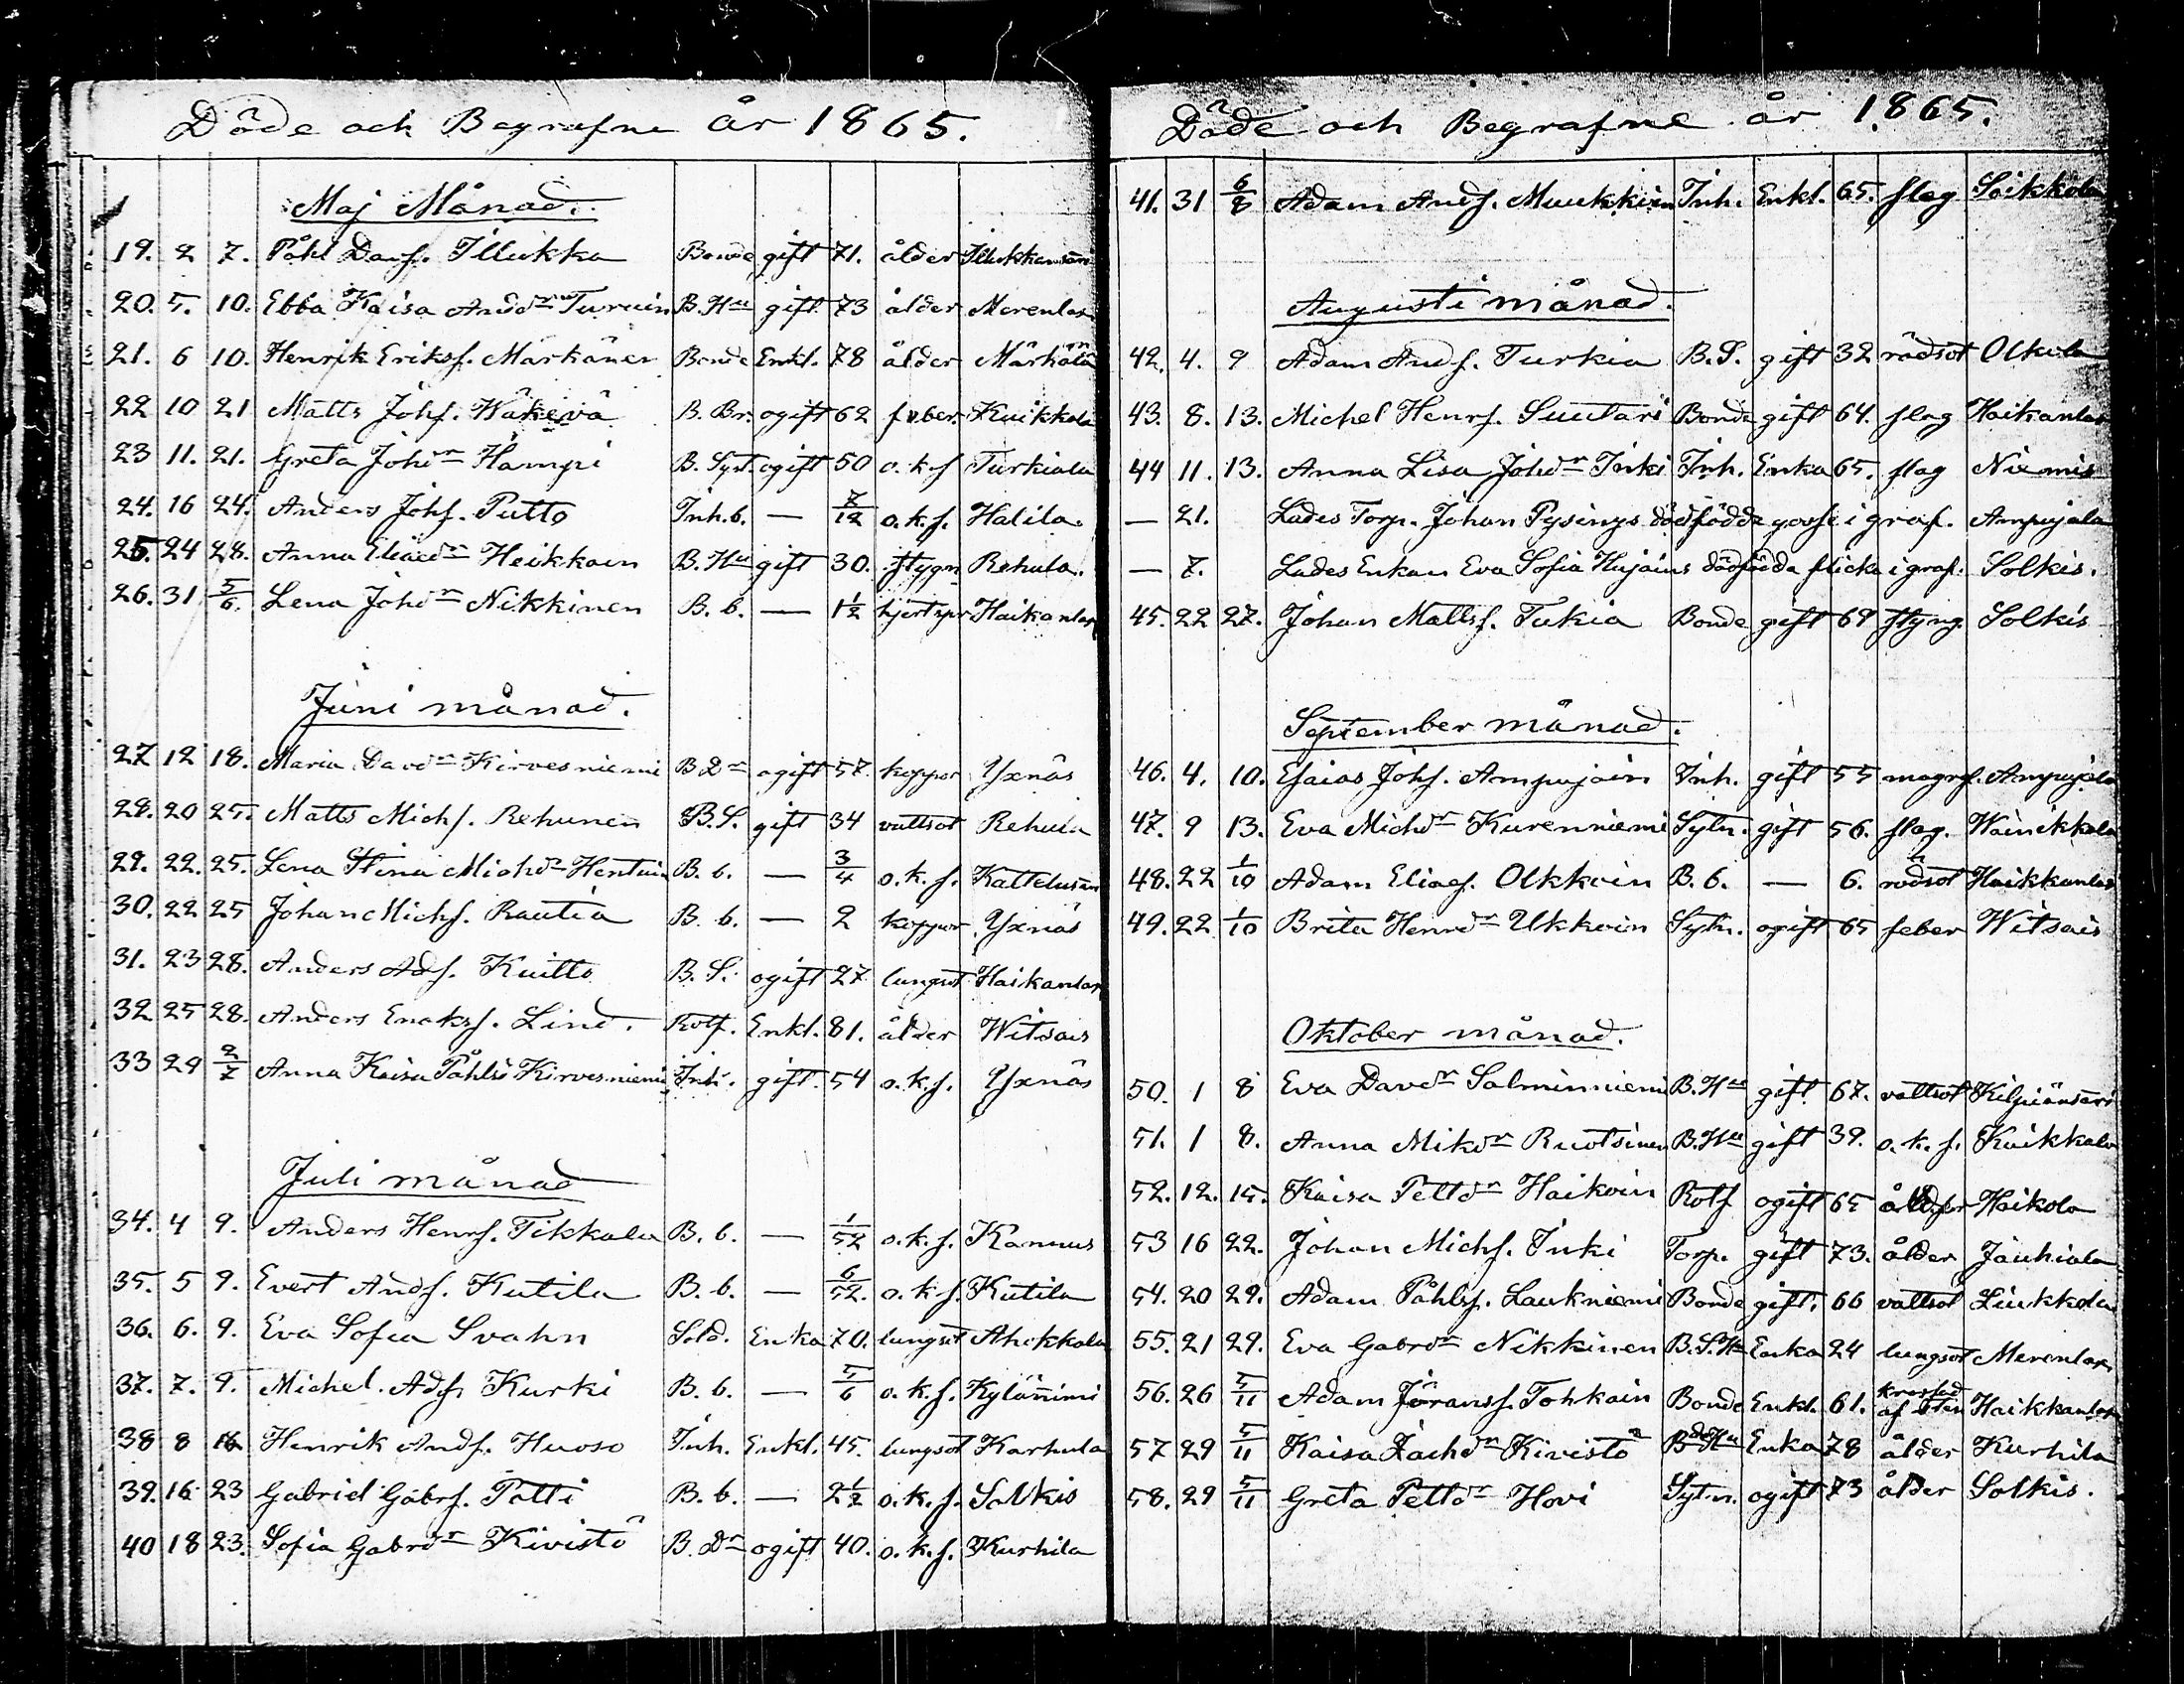 Döde och Begrafne år 1865.
Maj Månad.
19. 2 7. Påhl Danſ. Illukka Bonde gift 71. ålder Illukkansaari
20. 5. 10. Ebba Kaisa Andsdr Turuin B. Hu gift 73 ålder Merenlax
21. 6 10. Henrik Eriksſ. Märkänen Bonde Enkl. 78 ålder Märkälä
22 10 21 Matts Johſ. Wäkevä B. Br. ogift 62 feber. Kuikkola
23 11. 21. Greta Johdr Hämpi B. Syst. ogift 50 o. k. ſ Turkiala
24. 16 24. Anders Johſ. Putto Inh. b. — 7/12 o. k. ſ. Halila.
25. 24 28. Anna Eliædr Heikkoin B. Hu gift 30. ſtygn Rehula.
26. 31 5/6. Lena Johdr Nikkinen B. b. — 1 1/2 hjertspr Haikanlax
Juni månad.
27 12 18. Maria Davdr Kirvesniemi B Dr ogift 57. koppor Yxnäs
28. 20 25. Matts Michſ. Rehunen B. S. gift 34 vattsot Rehula
29. 22. 25. Lena Stina Michdr Hentuin B. b. — 3/4 o. k. ſ. Kattelus
30. 22 25 Johan Michſ. Rautia B. b. — 2 koppor Yxnäs
31. 23 28. Anders Adſ. Kuitto B. S. ogift 27 lungsot Haikanlax
32 25 28. Anders Enoksſ. Lind. Rotf. Enkl. 81. ålder Witsais
33 29 2/7 Anna Kaisa Påhls Kirvesniemi Inh. gift. 54 o. k. ſ. Yxnäs
Juli månad
34. 4 9. Anders Henrſ. Tikkala B. b. — 1/52 o. k. ſ. Kannus
35. 5 9. Evert Andſ. Kutila B. b. — 6/52. o. k. ſ. Kutila
36. 6. 9. Eva Sofia Svahn Sold. Enka 70. lungsot Ahokkala
37. 7. 9. Michel. Adſ. Kurki B. b. — 5/6 o. k. ſ. Kylänimi
38 8 16 Henrik Andſ. Huoso Inh. Enkl. 45. lungsot Karhula
39. 16 23 Gabriel Gabrſ. Potti B. b. — 2 1/2 o. k. ſ. Solkis
40 18 23. Sofia Gabrdr Kivistö B. Dr ogift 40. o. k. ſ. Kurhila
Döde och Begrafne år 1865.
41. 31 6/8 Adam Andſ. Muukkoin Inh. Enkl. 65. ſlag Soikkola
Augusti månad.
42. 4. 9 Adam Andſ. Turkia B. S. gift 32 rödsot Olkola
43. 8. 13. Michel Henrſ. Suutari Bonde gift 64. ſlag Haikanlax
44 11. 13. Anna Lisa Johdr Inki Inh. Enka 65. ſlag Niemis
— 21. Lades Torp. Johan Pysings dödfödde gosse i graf. Ampujala
— 7. Lades Enkan Eva Sofia Hujains dödfödda flicka i graf. Solkis.
45. 22 27. Johan Mattsſ. Tukia Bonde gift 69 ſtyng. Solkis
September månad.
46. 4. 10. Eſaias Johſ. Ampujain Inh. gift 55 magrſ. Ampujala
47. 9 13. Eva Michdr Kurenniemi Sytn. gift 56. ſlag. Wainikkala
48. 22 1/10 Adam Eliaeſ. Olkkoin B. b. — 6. rödsot Haikkanlax
49. 22 1/10 Brita Henrdr Ukkoin Sytn. ogift 65 feber Witsais
Oktober månad.
50. 1 8 Eva Davdr Salminniemi B. Hu gift 67. vattsot Kilpiänsaari
51. 1 8. Anna Mikdr Ruotsinen B. Hu gift 39. o. k. ſ. Kuikkala
52. 12. 15. Kaisa Pettdr Haikoin Rotf ogift 65 Haikola
53 16 22. Johan Michſ. Inki Torp. gift 73. ålder Jauhiala
54. 20 29. Adam Påhlsſ. Laukniemi Bonde gift. 66 vattsot Liukkola
55. 21 29. Eva Gabrdr Nikkinen B. S. Hu Enka 24 lungsot Merenlax
56. 26 5/11 Adam Jöransſ. Tohkain Bonde Enkl. 61. krossad af sten Haikkanlax
57 29 5/11 Kaisa Zachdr Kivistö Bde Hu Enka 78 ålder Kurhila
58. 29 5/11 Greta Pettdr Hovi Sytn. ogift 73 ålder Solkis.